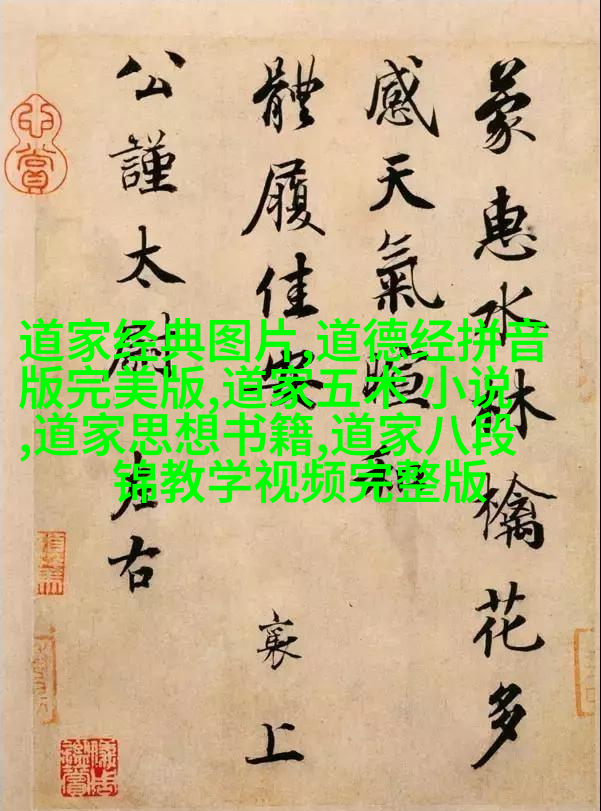 道家经典图片,道德经拼音
版完美版,道家五术 小说
,道家思想书籍,道家八段
锦教学视频完整版
蒙惠水林檎花多
感天氣暄和
體履佳安
襄上
公謹太尉左右